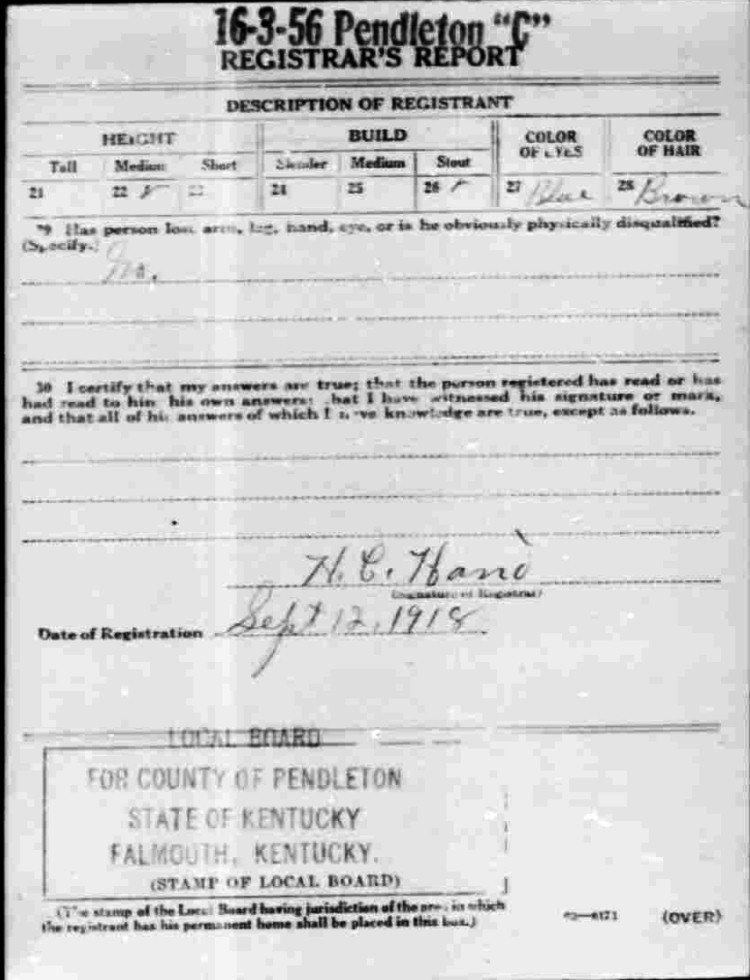 16-3-56 Pendleton "C"
REGISTRAR'S REPORT
DESCRIPTION OF REGISTRANT
HEIGHT BUILD COLOR OF EYES COLOR OF HAIR
Tall Medium Short Slender Medium Stout
21 22 ✓ 23 24 25 26 ✓ 27 Blue 28 Brown
29 Has person lost arm, leg, hand, eye, or is he obviously physically disqualified?
(Specify.)
No.
30 I certify that my answers are true; that the person registered has read or has
had read to him his own answers; that I have witnessed his signature or mark,
and that all of his answers of which I have knowledge are true, except as follows.
H. C. Hand
(Signature of Registrar)
Date of Registration Sept 12, 1918
LOCAL BOARD
FOR COUNTY OF PENDLETON
STATE OF KENTUCKY
FALMOUTH, KENTUCKY.
(STAMP OF LOCAL BOARD)
(The stamp of the Local Board having jurisdiction of the area in which
the registrant has his permanent home shall be placed in this box.)
(OVER)